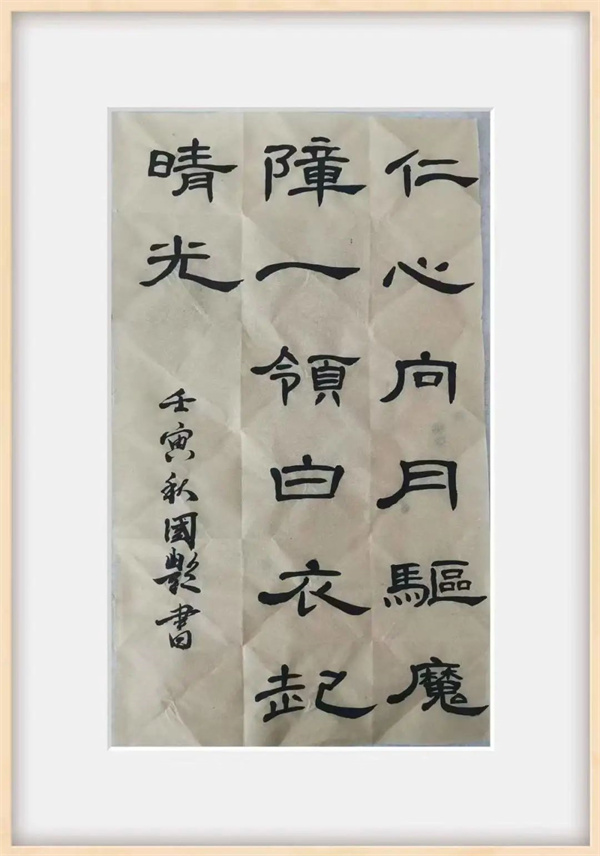 仁心向月驅魔
障一領白衣起
晴光
壬寅秋國艷書